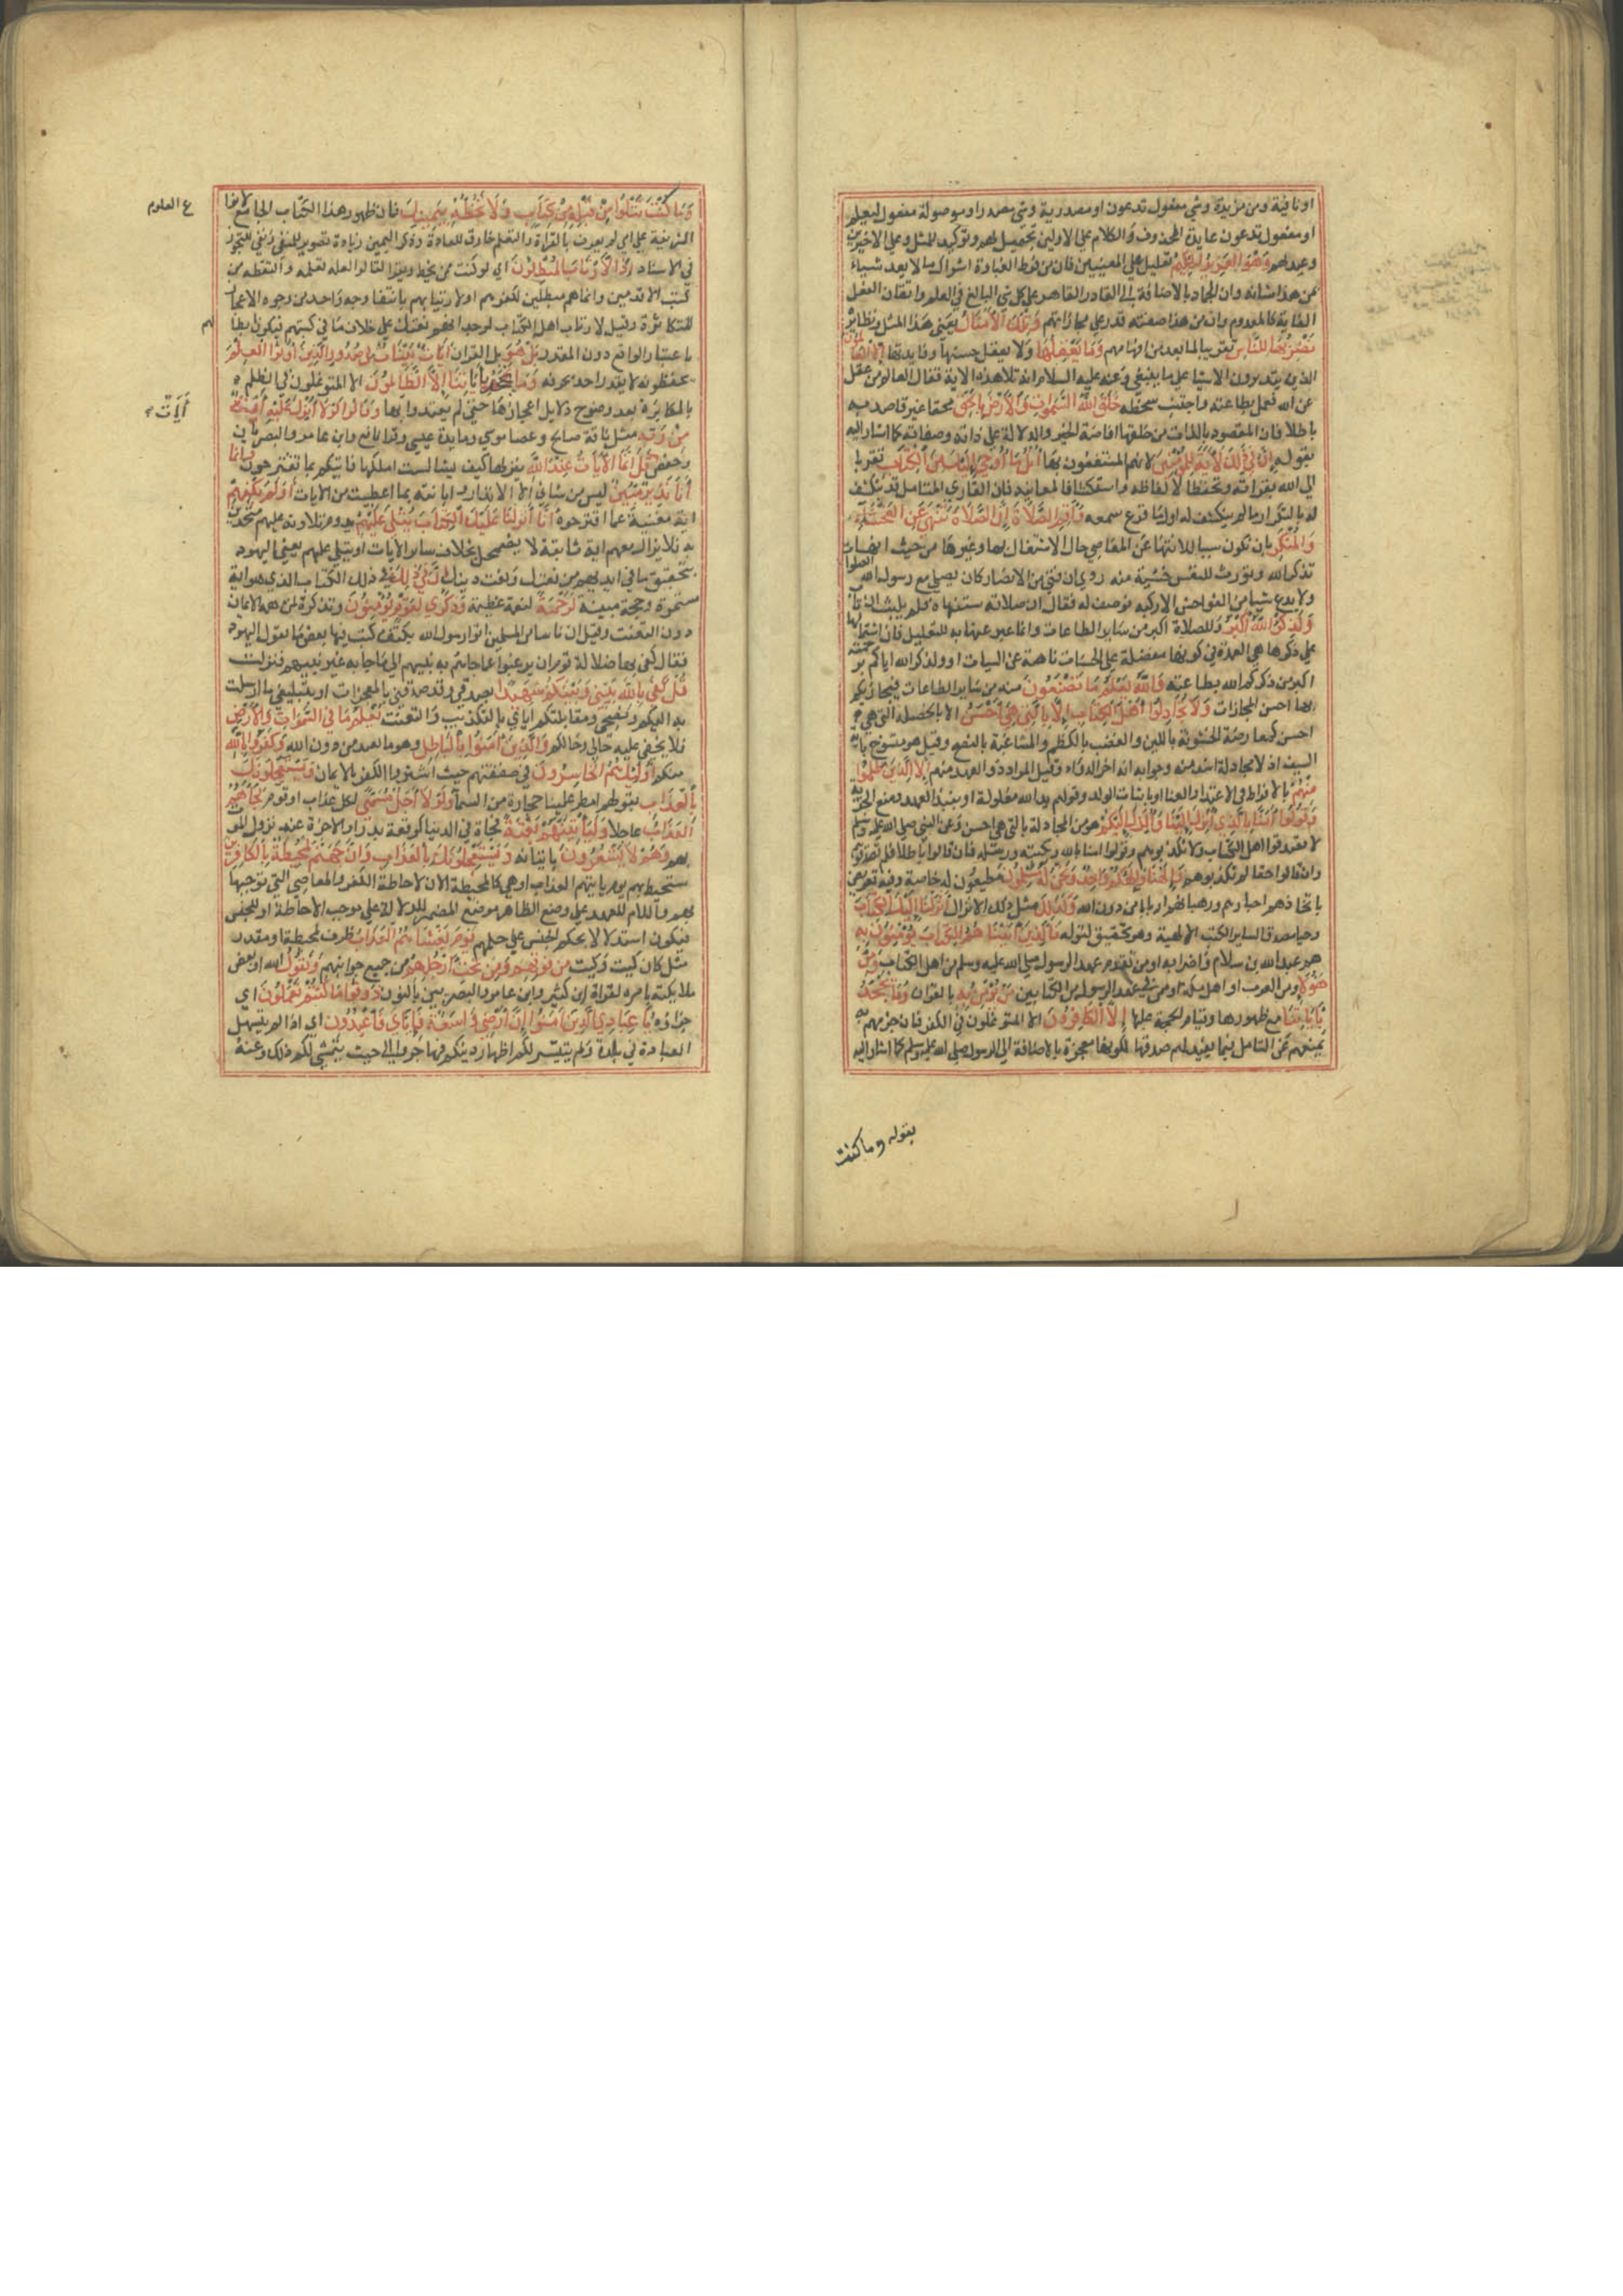 او نافية ومن مزيدة وشي مفعول تدعون او مصدرية وشي مصدر او موصولة مفعول ليعلم
او مفعول تدعون عايده المحذوف والكلام علي الاولين تجهيل لهم وتوكيد للمثل وعلي الاخيرين
وعيد لهم وَهُوَ العَزِيزُ الحَكِيمُ تعليل علي المعنيين فان من فرط الغباوة اشراك ما لا يعد شيياء
بمن هذا شانه وان الجماد بالاضافة الي القادر القاهر علي كل شي البالغ في العلم واتقان الفعل
الغاية كالمعدوم وان من هذا صفته قدر علي مجازاتهم وَتِلْكَ الأَمْثَالُ يعني هذا المثل ونظائره
نَضْرِبُهَا لِلنَّاسِ تقريبا لما بعد من افهامهم وَمَا يَعْقِلُهَا ولا يعقل حسنها وفايدتها إلا العالمون
الذين يتدبرون الاشيا علي ما ينبغي وعنه عليه السلام انه تلا هذه الاية فقال العالم من عقل
عن الله فعمل بطاعته واجتنب سخطه خَلَقَ اللَّهُ السَّمَوَاتِ وَالأَرْضَ بِالحَقِّ محقا غير قاصد به
باطلا فان المقصود بالذات من خلقها افاضة الخير والدلالة علي ذاته وصفاته كما اشار اليه
بقوله إِنَّ فِي ذَلِكَ لآيَةً لِلْمُؤْمِنِينَ لانهم المنتفعون بها اتْلُ مَا أُوحِيَ إِلَيْكَ مِنَ الكِتَابِ تقربا
الي الله بقراته وتحفظا لالفاظه واستكشافا لمعانيه فان القاري المتامل قد ينكشف
له بالتكرار ما لم ينكشف له اول ما قرع سمعه وَأَقِمِ الصَّلاَةَ إِنَّ الصَّلاَةَ تَنْهَى عَنِ الفَحْشَاءِ
وَالمُنْكَرِ بان تكون سببا للانتها عن المعاصي حال الاشتغال بها وغيرها من حيث انها
تذكر الله وتورث للنفس خشية منه روي ان فتي من الانصار كان يصلي مع رسول الله الصلوات
ولا يدع شيا من الفواحش الا ركبه فوصف له فقال ان صلاته ستنهاه فلم يلبث ان تاب
وَلَذِكْرُ اللَّهِ أَكْبَرُ وللصلاة اكبر من ساير الطاعات وانما عبر عنها به للتعليل فان اشتمالها
علي ذكرها هي العمدة في كونها مفضلة علي الحسنات ناهية عن السيات او ولذكر الله اياكم برحمته
اكبر من ذكركم الله بطاعته وَاللَّهُ يَعْلَمُ مَا تَصْنَعُونَ منه من ساير الطاعات فيجازيكم
بها احسن المجازات وَلاَ تُجَادِلُوا أَهْلَ الكِتَابِ إِلاَّ بِالَّتِي هِيَ أَحْسَنُ الا بالخصلة التي هي
احسن كمعارضة الخشونة باللين والغضب بالكظم والمشاغبة بالنصح وقيل هو منسوخ باية
السيف اذ لا مجادلة اشد منه وجوابه انه اخر الدواء وقيل المراد ذو العهد منهم إِلاَّ الَّذِينَ ظَلَمُوا
مِنْهُمْ بالافراط في الاعتداء والعناد او باثبات الولد وقولهم يد الله مغلولة او بنبذ العهد ومنع الجزية
وَقُولُوا آمَنَّا بِالَّذِي أُنْزِلَ إِلَيْنَا وَأُنْزِلَ إِلَيْكُمْ هو من المجادلة بالتي هي احسن وعن النبي صلي الله عليه وسلم
لا تصدقوا اهل الكتاب ولا تكذبوهم وقولوا امنا بالله وبكتبه ورسله فان قالوا باطلا لم تصدقوهم
وان قالوا حقا لم تكذبوهم وَإِلَهُنَا وَإِلَهُكُمْ وَاحِدٌ وَنَحْنُ لَهُ مُسْلِمُونَ مطيعون له خاصة وفيه تعريض
باتخاذهم احبارهم ورهبانهم اربابا من دون الله وَكَذَلِكَ مثل ذلك الانزال أَنْزَلْنَا إِلَيْكَ الكِتَابَ
وحيا مصدقا لساير الكتب الالهية وهو تحقيق لقوله فَالَّذِينَ آتَيْنَاهُمُ الكِتَابَ يُؤْمِنُونَ بِهِ
هم عبد الله بن سلام واضرابه او من تقدم عهد الرسول صلي الله عليه وسلم من اهل الكتاب وَمِنْ
هَؤُلاَءِ ومن العرب او اهل مكة او من في عهد الرسول من الكتابيين مَنْ يُؤْمِنُ بِهِ بالقران وَمَا يَجْحَدُ
بِآيَاتِنَا مع ظهورها وقيام الحجة عليها إِلاَّ الكَافِرُونَ الا المتوغلون في الكفر فان جزمهم به
يمنعهم عن التامل فيما يفيد لهم صدقها لكونها معجزة بالاضافة الي الرسول صلي الله عليه وسلم كما اشار اليه
بقوله وما كنت
وَمَا كُنْتَ تَتْلُوا مِنْ قَبْلِهِ مِنْ كِتَابٍ وَلاَ تَخُطُّهُ بِيَمِينِكَ فان ظهور هذا الكتاب الجامع لانواع العلوم
الشريفة علي امي لم يعرف بالقراة والتعلم خارق للعادة وذكر اليمين زيادة تصوير للمنفي ونفي للتجوز
في الاسناد إِذًا لاَرْتَابَ المُبْطِلُونَ اي لو كنت ممن يخط ويقرا لقالوا لعله تعلمه والتقطه من
كتب الاقدمين وانما سماهم مبطلين لكفرهم او لارتيابهم بانتفا وجه واحد من وجوه الاعجاز
المتكاثرة وقيل لارتاب اهل الكتاب لوجدانهم نعتك علي خلاف ما في كتبهم فيكون ابطالهم
باعتبار الواقع دون المقدر بَلْ هُوَ بل القران آيَاتٌ بَيِّنَاتٌ فِي صُدُورِ الَّذِينَ أُوتُوا العِلْمَ
يحفظونه لا يقدر احد تحريفه وَمَا يَجْحَدُ بِآيَاتِنَا إِلاَّ الظَّالِمُونَ الا المتوغلون في الظلم
بالمكابرة بعد وضوح دلايل اعجازها حتي لم يعتدوا بها وَقَالُوا لَوْلاَ أُنْزِلَ عَلَيْهِ آيَةٌ آيَاتٌ
مِنْ رَبِّهِ مثل ناقة صالح وعصا موسي ومايدة عيسي وقرا نافع وابن عامر والبصريان
وحفص قُلْ إِنَّمَا الآيَاتُ عِنْدَ اللَّهِ ينزلها كيف يشا لست املكها فاتيكم بما تقترحون وَإِنَّمَا
أَنَا نَذِيرٌ مُبِينٌ ليس من شاني الا الانذار وابانته بما اعطيت من الايات أَوَلَمْ يَكْفِهِمْ
اية مغنية عما اقترحوه أَنَّا أَنْزَلْنَا عَلَيْكَ الكِتَابَ يُتْلَى عَلَيْهِمْ يدوم تلاوته عليهم متحدين
به فلا يزال معهم اية ثابتة لا يضمحل بخلاف ساير الايات او يتلي عليهم يعني اليهود
بتحقيق ما في ايديهم من نعتك ونعت دينك إِنَّ فِي ذَلِكَ في ذلك الكتاب الذي هو اية
مستمرة وحجة مبينة لَرَحْمَةً لنعمة عظيمة وَذِكْرَى لِقَوْمٍ يُؤْمِنُونَ وتذكرة لمن همه الايمان
دون التعنت وقيل ان ناسا من المسلمين اتوا رسول الله بكتف كتب فيها بعض ما يقول اليهود
فقال كفي بها ضلالة قوم ان يرغبوا عما جاتهم به نبيهم الي ما جا به غير نبيهم فنزلت
قُلْ كَفَى بِاللَّهِ بَيْنِي وَبَيْنَكُمْ شَهِيدًا بصدقي وقد صدقني بالمعجزات او بتبليغي ما ارسلت
به اليكم ونصحي ومقابلتكم اياي بالتكذيب والتعنت يَعْلَمُ مَا فِي السَّمَوَاتِ وَالأَرْضِ
فلا يخفي عليه حالي وحالكم وَالَّذِينَ آمَنُوا بِالبَاطِلِ وهو ما يعبد من دون الله وَكَفَرُوا بِاللَّهِ
منكم أُولَئِكَ هُمُ الخَاسِرُونَ في صفقتهم حيث اشتروا الكفر بالايمان وَيَسْتَعْجِلُونَكَ
بِالعَذَابِ بقولهم امطر علينا حجارة من السماء وَلَوْلاَ أَجَلٌ مُسَمًّى لكل عذاب او قوم لَجَاءَهُمُ
العَذَابُ عاجلا وَلَيَأْتِيَنَّهُمْ بَغْتَةً فجاة في الدنيا كوقعة بدر او الاخرة عند نزول الموت
بهم وَهُمْ لاَ يَشْعُرُونَ باتيانه وَيَسْتَعْجِلُونَكَ بِالعَذَابِ وَإِنَّ جَهَنَّمَ لَمُحِيطَةٌ بِالكَافِرِينَ
ستحيط بهم يوم ياتيهم العذاب او هي كالمحيطة الان لاحاطة الكفر والمعاصي التي توجبها
بهم واللام للعهد علي وضع الظاهر موضع المضمر للدلالة علي موجب الاحاطة او للجنس
فيكون استدلالا بحكم الجنس علي حكمهم يَوْمَ يَغْشَاهُمُ العَذَابُ ظرف لمحيطة او مقدر
مثل كان كيت وكيت مِنْ فَوْقِهِمْ وَمِنْ تَحْتِ أَرْجُلِهِمْ من جميع جوانبهم وَيَقُولُ الله او بعض
ملايكته بامره لقراة ابن كثير وابن عامر والبصريين بالنون ذُوقُوا مَا كُنْتُمْ تَعْمَلُونَ اي
جزاؤه يَا عِبَادِيَ الَّذِينَ آمَنُوا إِنَّ أَرْضِي وَاسِعَةٌ فَإِيَّايَ فَاعْبُدُونِ اي اذا لم يتسهل
العبادة في بلدة ولم يتيسر لكم اظهار دينكم فهاجروا الي حيث يتمشي لكم ذلك وعنه